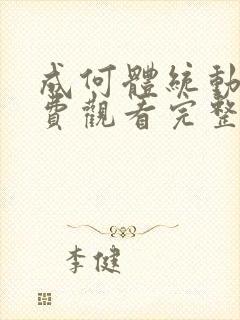 成何體統動
費觀看完整
李健